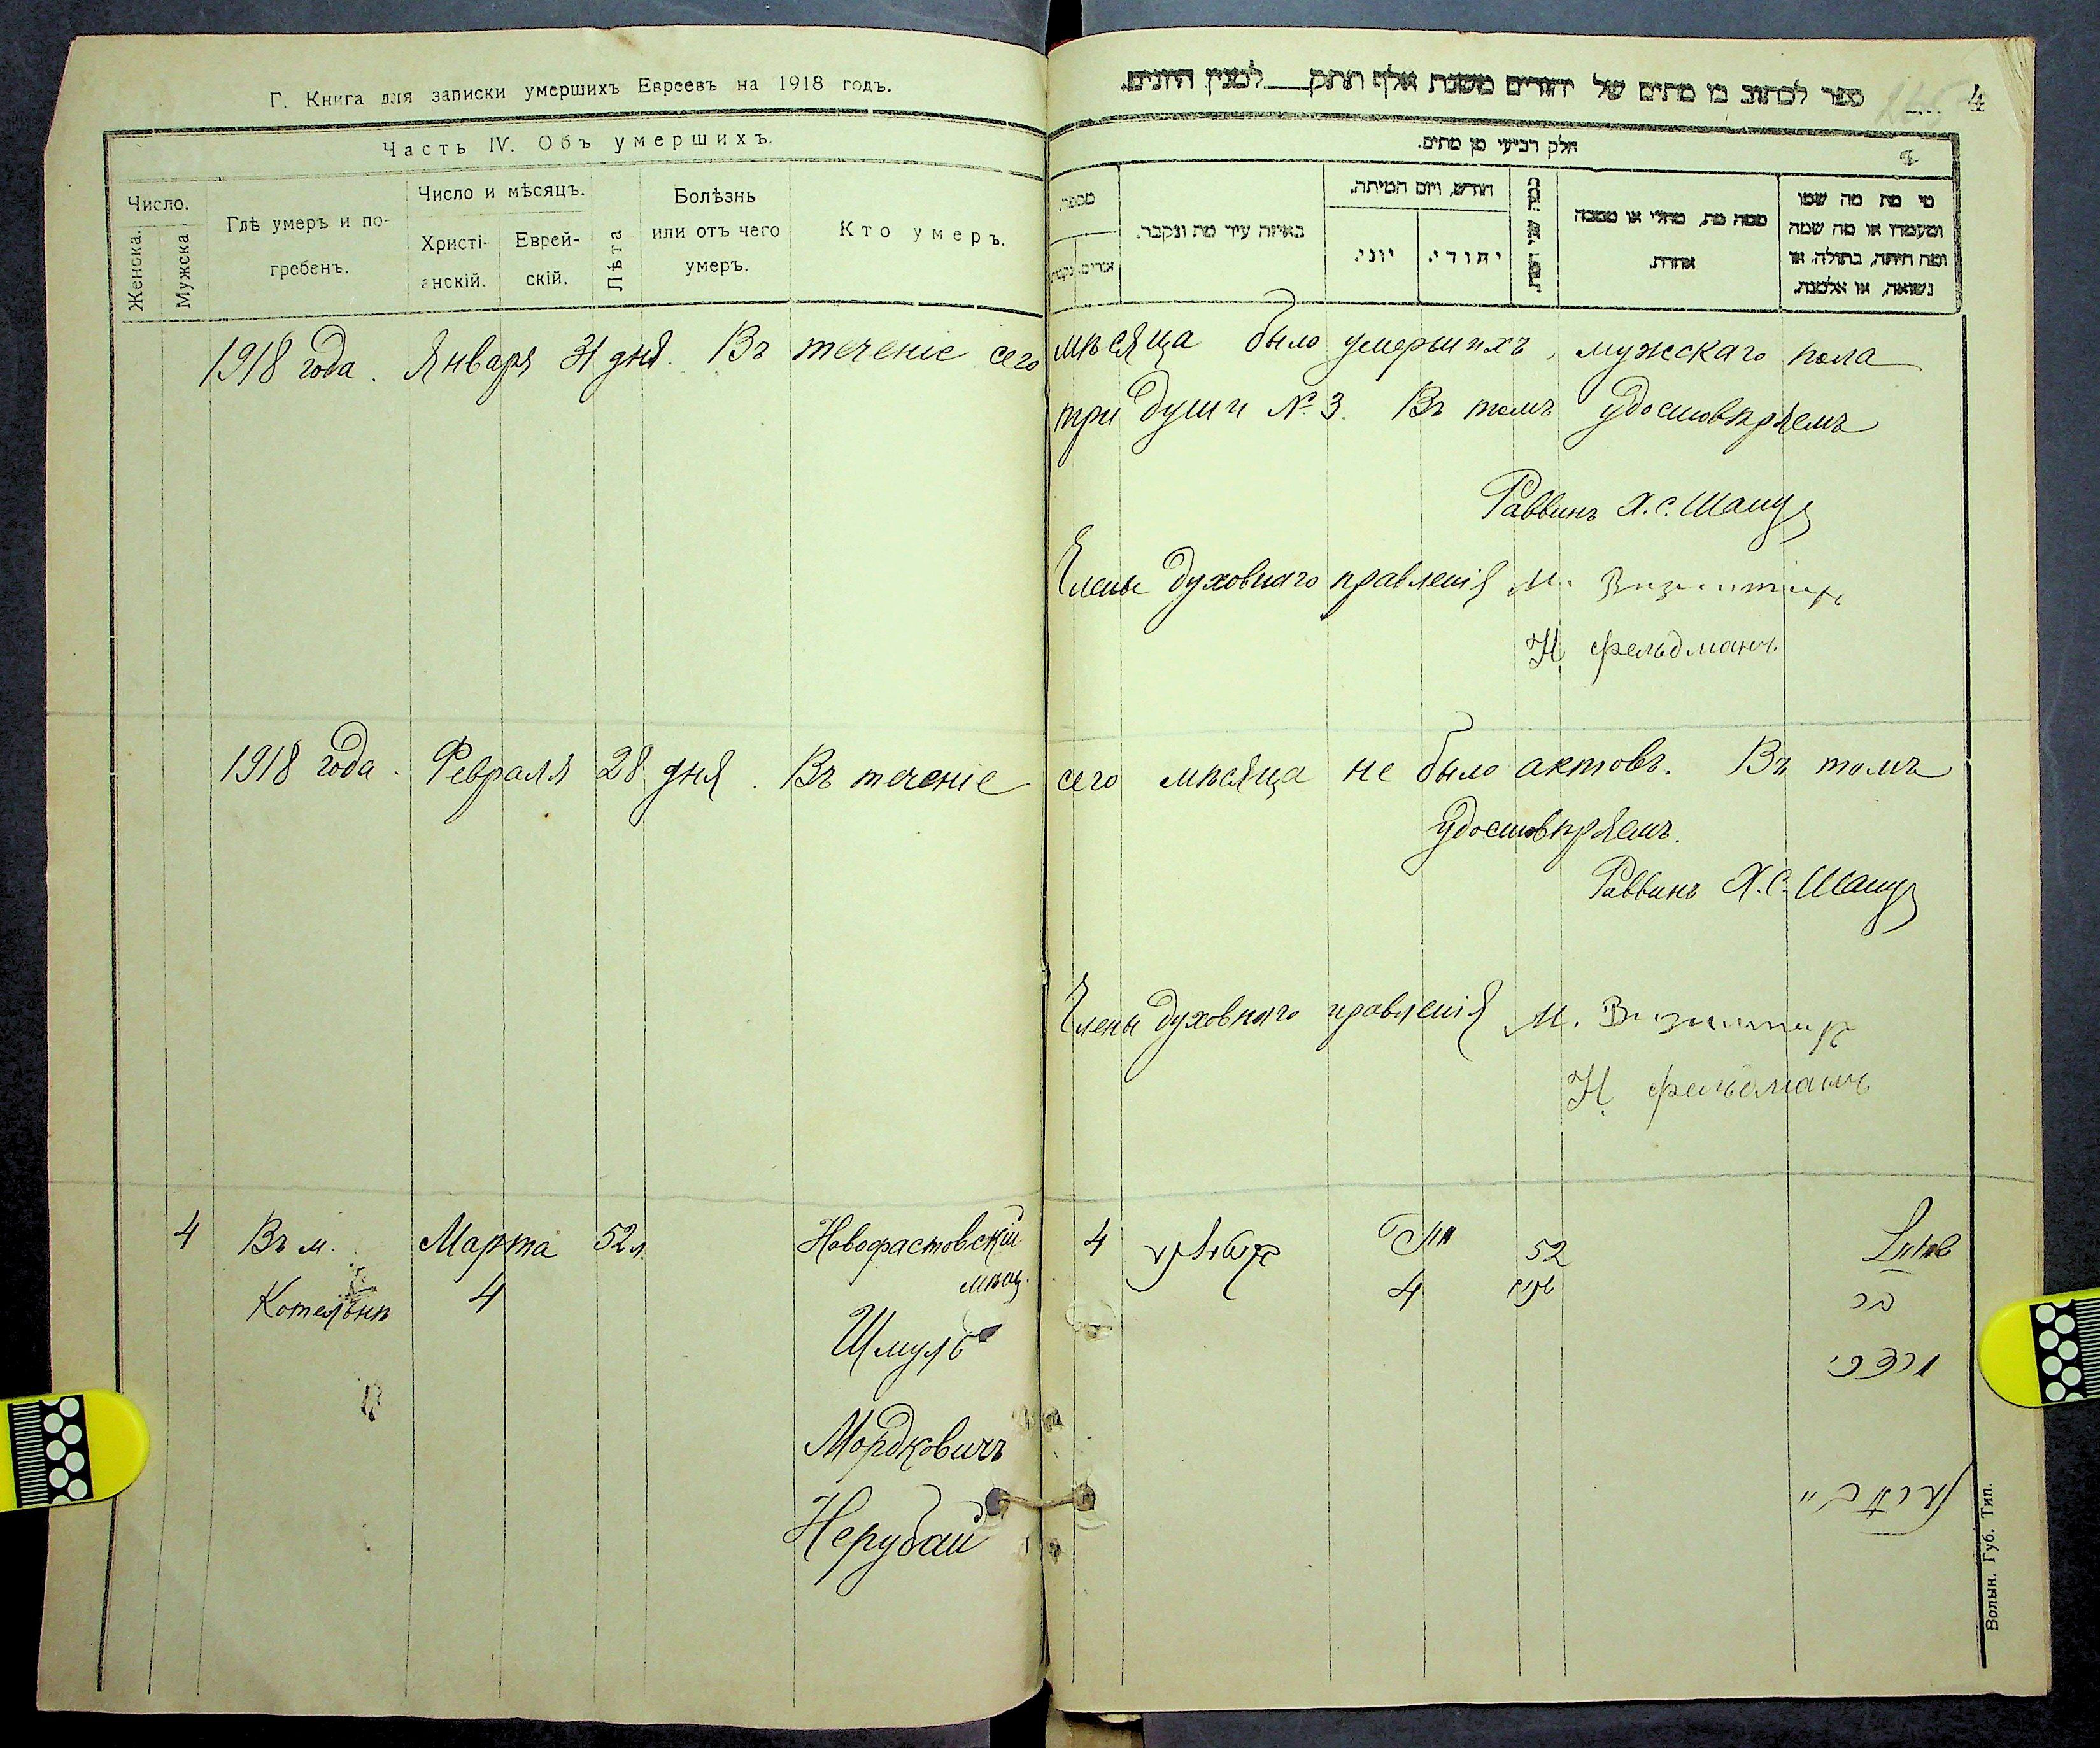 Г. Книга для записки умершихъ Евреевъ на 1918 годъ.
Часть IV. Объ умершихъ.
Число.
Женска.
Мужска
Гдѣ умеръ и по-
гребенъ.
Число и мѣсяцъ.
Христі-
анскій.
Еврей-
скій.
Лѣта
Болѣзнь
или отъ чего
умеръ.
Кто умеръ.
ספר לכתוב בו מתים של יהודים משנת אלף תתק למנין היונים.
4
חלק רביעי מן מתים.
מספר.
באיזה עיר מת ונקבר.
חודש, ויום המיתה.
יוני.
יהודי.
ממה מת, מחלי או מסבה
אחרת.
מי מת מה שמו
ומעמדו או מה שמה
ומה היתה, בתולה, או
נשואה, או אלמנה.
1918 года. Января 31 дня. Въ теченіе сего мѣсяца было умершихъ, мужскаго пола
три души № 3. Въ томъ удостовѣряемъ
Раввинъ Х. С.
Члены духовнаго правленія М.
Н. Фельдманъ
1918 года. Февраля 28 дня. Въ теченіе сего мѣсяца не было актовъ. Въ томъ
удостовѣряемъ.
Раввинъ Х. С.
Члены духовнаго правленія М.
Н. Фельдманъ
4 Въ м. Марта 52 л. Новофастовскій
Котельнѣ 4 мѣщ.
Шмуль
Мордковичъ
Нерубай
4 52
4
בר
Волын. Губ. Тип.